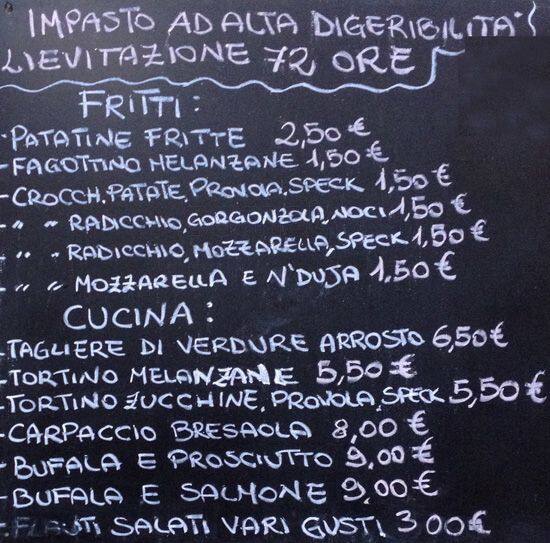 IMPASTO AD ALTA DIGERIBILITA'
LIEVITAZIONE 72 ORE
FRITTI:
- PATATINE FRITTE 2,50 €
- FAGOTTINO MELANZANE 1,50 €
- CROCCH. PATATE, PROVOLA, SPECK 1,50 €
- " " RADICCHIO, GORGONZOLA, NOCI 1,50 €
- " " RADICCHIO, MOZZARELLA, SPECK 1,50 €
- " " MOZZARELLA E N'DUJA 1,50 €
CUCINA:
- TAGLIERE DI VERDURE ARROSTO 6,50 €
- TORTINO MELANZANE 5,50 €
- TORTINO ZUCCHINE, PROVOLA, SPECK 5,50 €
- CARPACCIO BRESAOLA 8,00 €
- BUFALA E PROSCIUTTO 9,00 €
- BUFALA E SALMONE 9,00 €
- FLAUTI SALATI VARI GUSTI 3,00 €